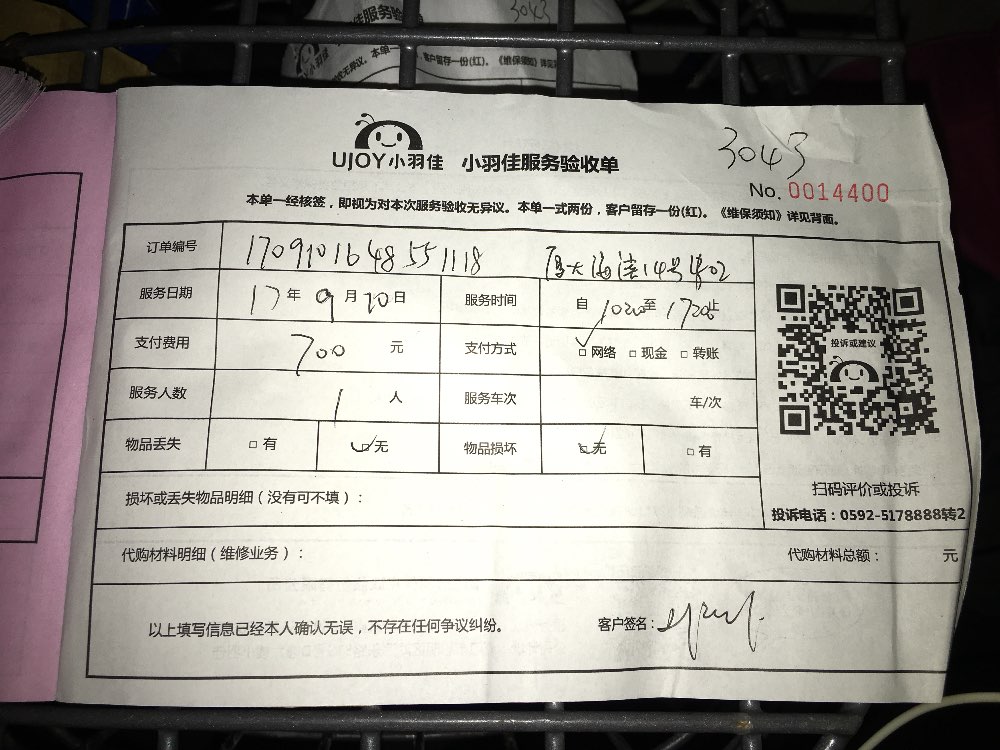 佳服务验收
3043
客户留存一份(红)。《维保须知》详见背
3043
UJOY小羽佳 小羽佳服务验收单
No. 0014400
本单一经核签，即视为对本次服务验收无异议。本单一式两份，客户留存一份(红)。《维保须知》详见背面。
订单编号 17091016485551118 厦大海滨14号402
服务日期 17年9月10日 服务时间 自1020至1720止
支付费用 700元 支付方式 网络 现金 转账
服务人数 1人 服务车次 车/次
物品丢失 有 无 物品损坏 无 有
投诉或建议
扫码评价或投诉
投诉电话：0592-5178888转2
损坏或丢失物品明细（没有可不填）：
代购材料明细（维修业务）： 代购材料总额： 元
以上填写信息已经本人确认无误，不存在任何争议纠纷。 客户签名：